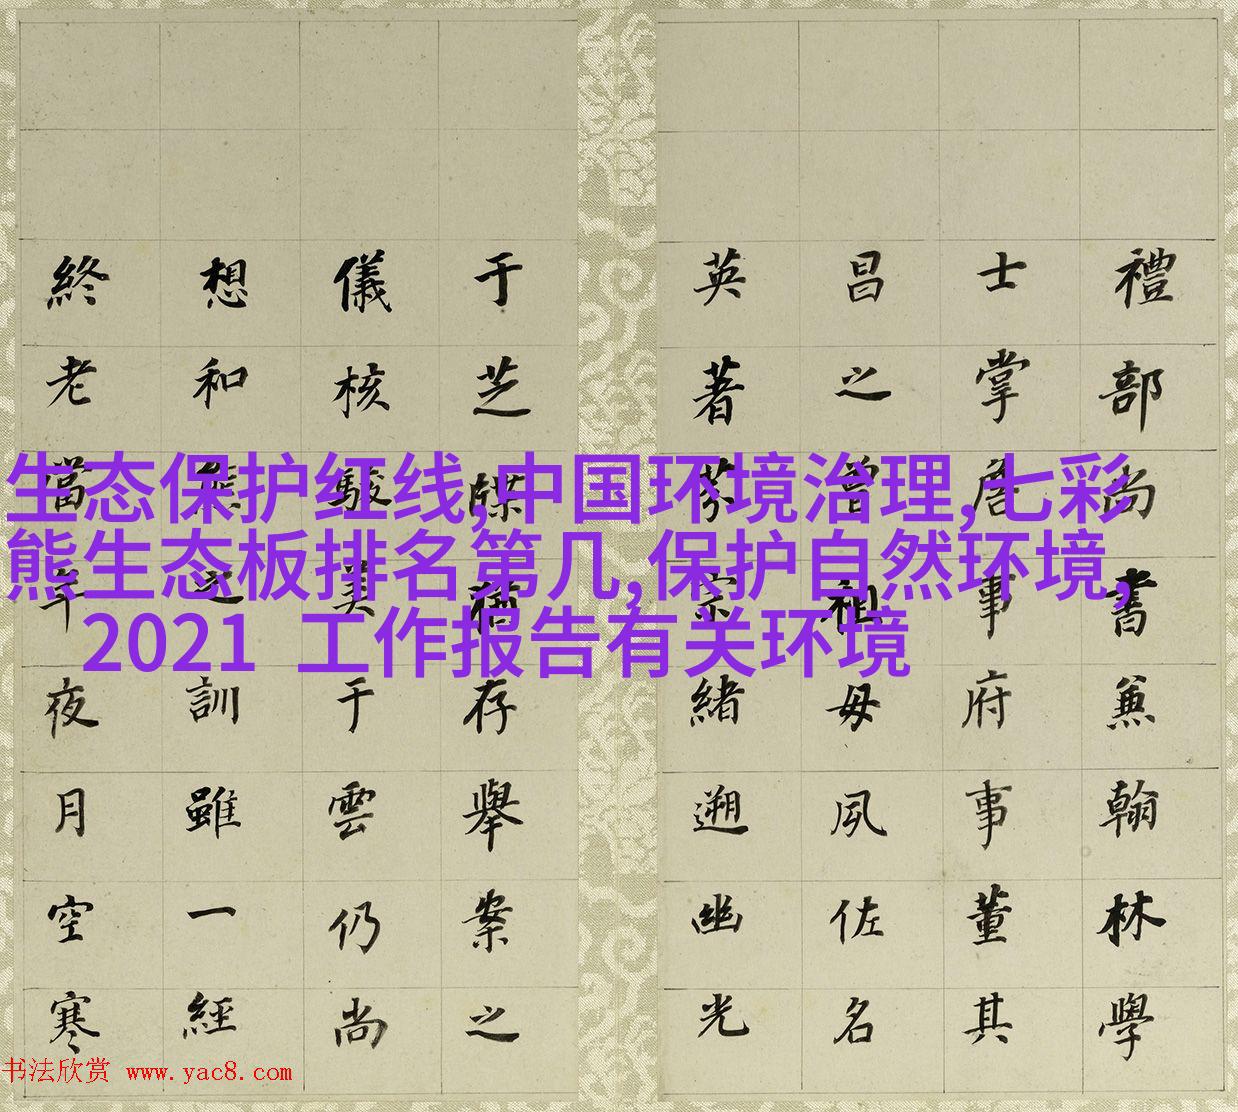 生态保护红线,中国环境治理,七彩
熊生态板排名第几,保护自然环境,
2021 工作报告有关环境
禮部尚書兼翰林學
士掌詹事府事董其
昌之曾祖母夙佐名
英著宗緒遡幽光
于芝牒存舉案之
儀核駿美于雲仍尚
想和熊之訓雖一經
終老當年夜月空寒
书法欣赏 www.yac8.com